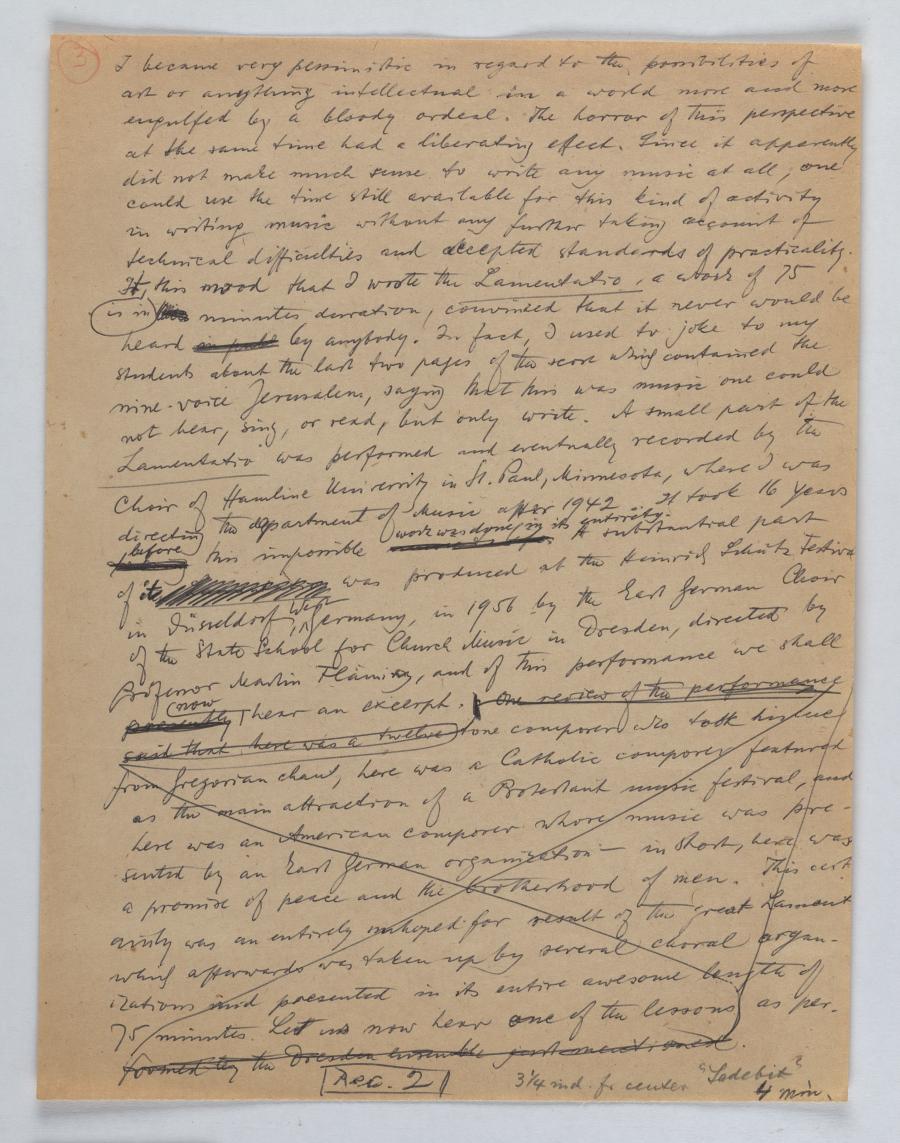 3
I became very pessimistic in regard to the possibilities of
art or anything intellectual in a world more and more
engulfed by a bloody ordeal. The horror of this perspective
at the same time had a liberating effect. Since it apparently
did not make much sense to write any music at all, one
could use the time still available for this kind of activity
in writing music without any further taking account of
technical difficulties and accepted standards of practicality.
It, this mood that I wrote the Lamentatio, a work of 75
is in minutes duration, convinced that it never would be
heard by anybody. In fact, I used to joke to my
students about the last two pages of the score which contained the
nine-voice Jerusalem, saying that this was music one could
not hear, sing, or read, but only write. A small part of the
Lamentatio was performed and eventually recorded by the
Choir of Hamline University in St. Paul, Minnesota, where I was
directing the department of Music after 1942. It took 16 years
before this impossible work was done in its entirety. A substantial part
of it was produced at the Heinrich Schütz Festival
in Düsseldorf, West Germany, in 1956 by the East German Choir
of the State School for Church Music in Dresden, directed by
Professor Martin Fläming, and of this performance we shall
presently now hear an excerpt. One review of the performance
said that here was a twelve tone composer who took his cue
from Gregorian chant, here was a Catholic composer featured
as the main attraction of a Protestant music festival, and
here was an American composer whose music was pre-
sented by an East German organization — in short, here was
a promise of peace and the brotherhood of men. This cert
ainly was an entirely unhoped for result of the great Lament
which afterwards was taken up by several choral organ-
izations and presented in its entire awesome length of
75 minutes. Let us now hear one of the lessons as per-
formed by the Dresden ensemble just mentioned.
Rec. 2 3 1/4 ind. fr center "Sedebit"
4 min.